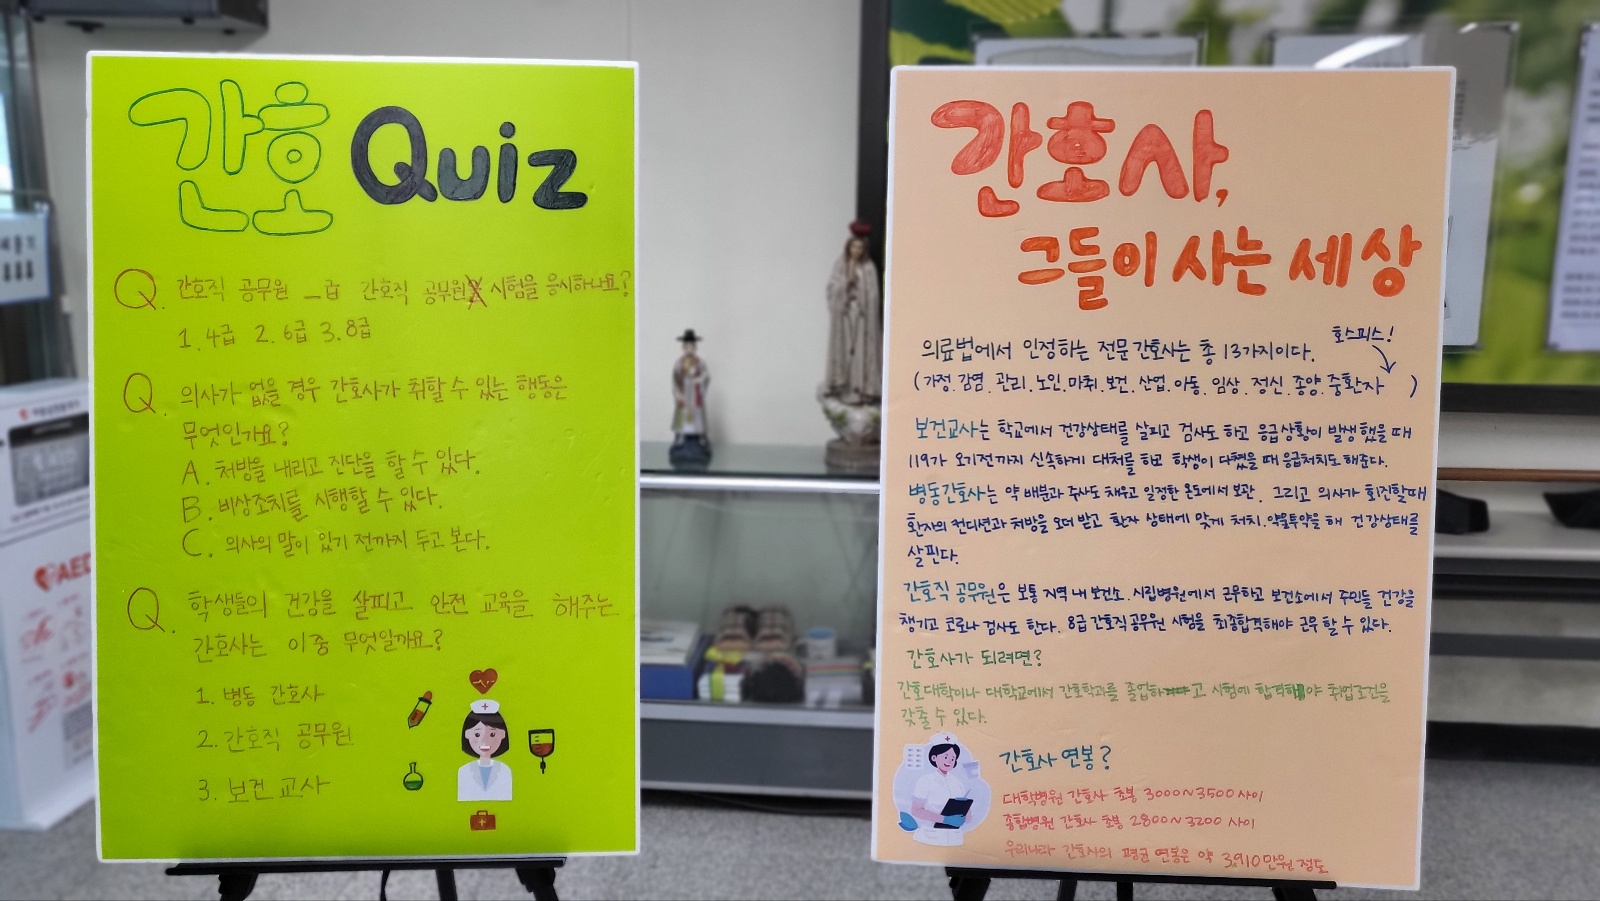 간호 Quiz
Q. 간호직 공무원 _급 간호직 공무원 시험을 응시하나요?
1. 4급 2. 6급 3. 8급
Q. 의사가 없을 경우 간호사가 취할 수 있는 행동은
무엇인가요?
A. 처방을 내리고 진단을 할 수 있다.
B. 비상조치를 시행할 수 있다.
C. 의사의 말이 있기 전까지 두고 본다.
Q. 학생들의 건강을 살피고 안전 교육을 해주는
간호사는 이 중 무엇일까요?
1. 병동 간호사
2. 간호직 공무원
3. 보건 교사
간호사,
그들이 사는 세상
호스피스!
의료법에서 인정하는 전문간호사는 총 13가지이다.
(가정.감염.관리.노인.마취.보건.산업.아동.임상.정신.종양.중환자 )
보건교사는 학교에서 건강상태를 살피고 검사도 하고 응급상황이 발생했을 때
119가 오기전까지 신속하게 대처를 하고 학생이 다쳤을 때 응급처치도 해준다.
병동간호사는 약 배분과 주사도 채우고 일정한 온도에서 보관. 그리고 의사가 회진할때
환자의 컨디션과 처방을 오더 받고 환자 상태에 맞게 처치.약물투약을 해 건강상태를
살핀다.
간호직 공무원은 보통 지역 내 보건소.시립병원에서 근무하고 보건소에서 주민들 건강을
챙기고 코로나 검사도 한다. 8급 간호직공무원 시험을 최종합격해야 근무 할 수 있다.
간호사가 되려면?
간호대학이나 대학교에서 간호학과를 졸업하고 시험에 합격해야 취업조건을
갖출 수 있다.
간호사 연봉?
대학병원 간호사 초봉 3000~3500사이
종합병원 간호사 초봉 2800~3200 사이
우리나라 간호사의 평균 연봉은 약 3,910만원 정도
AED